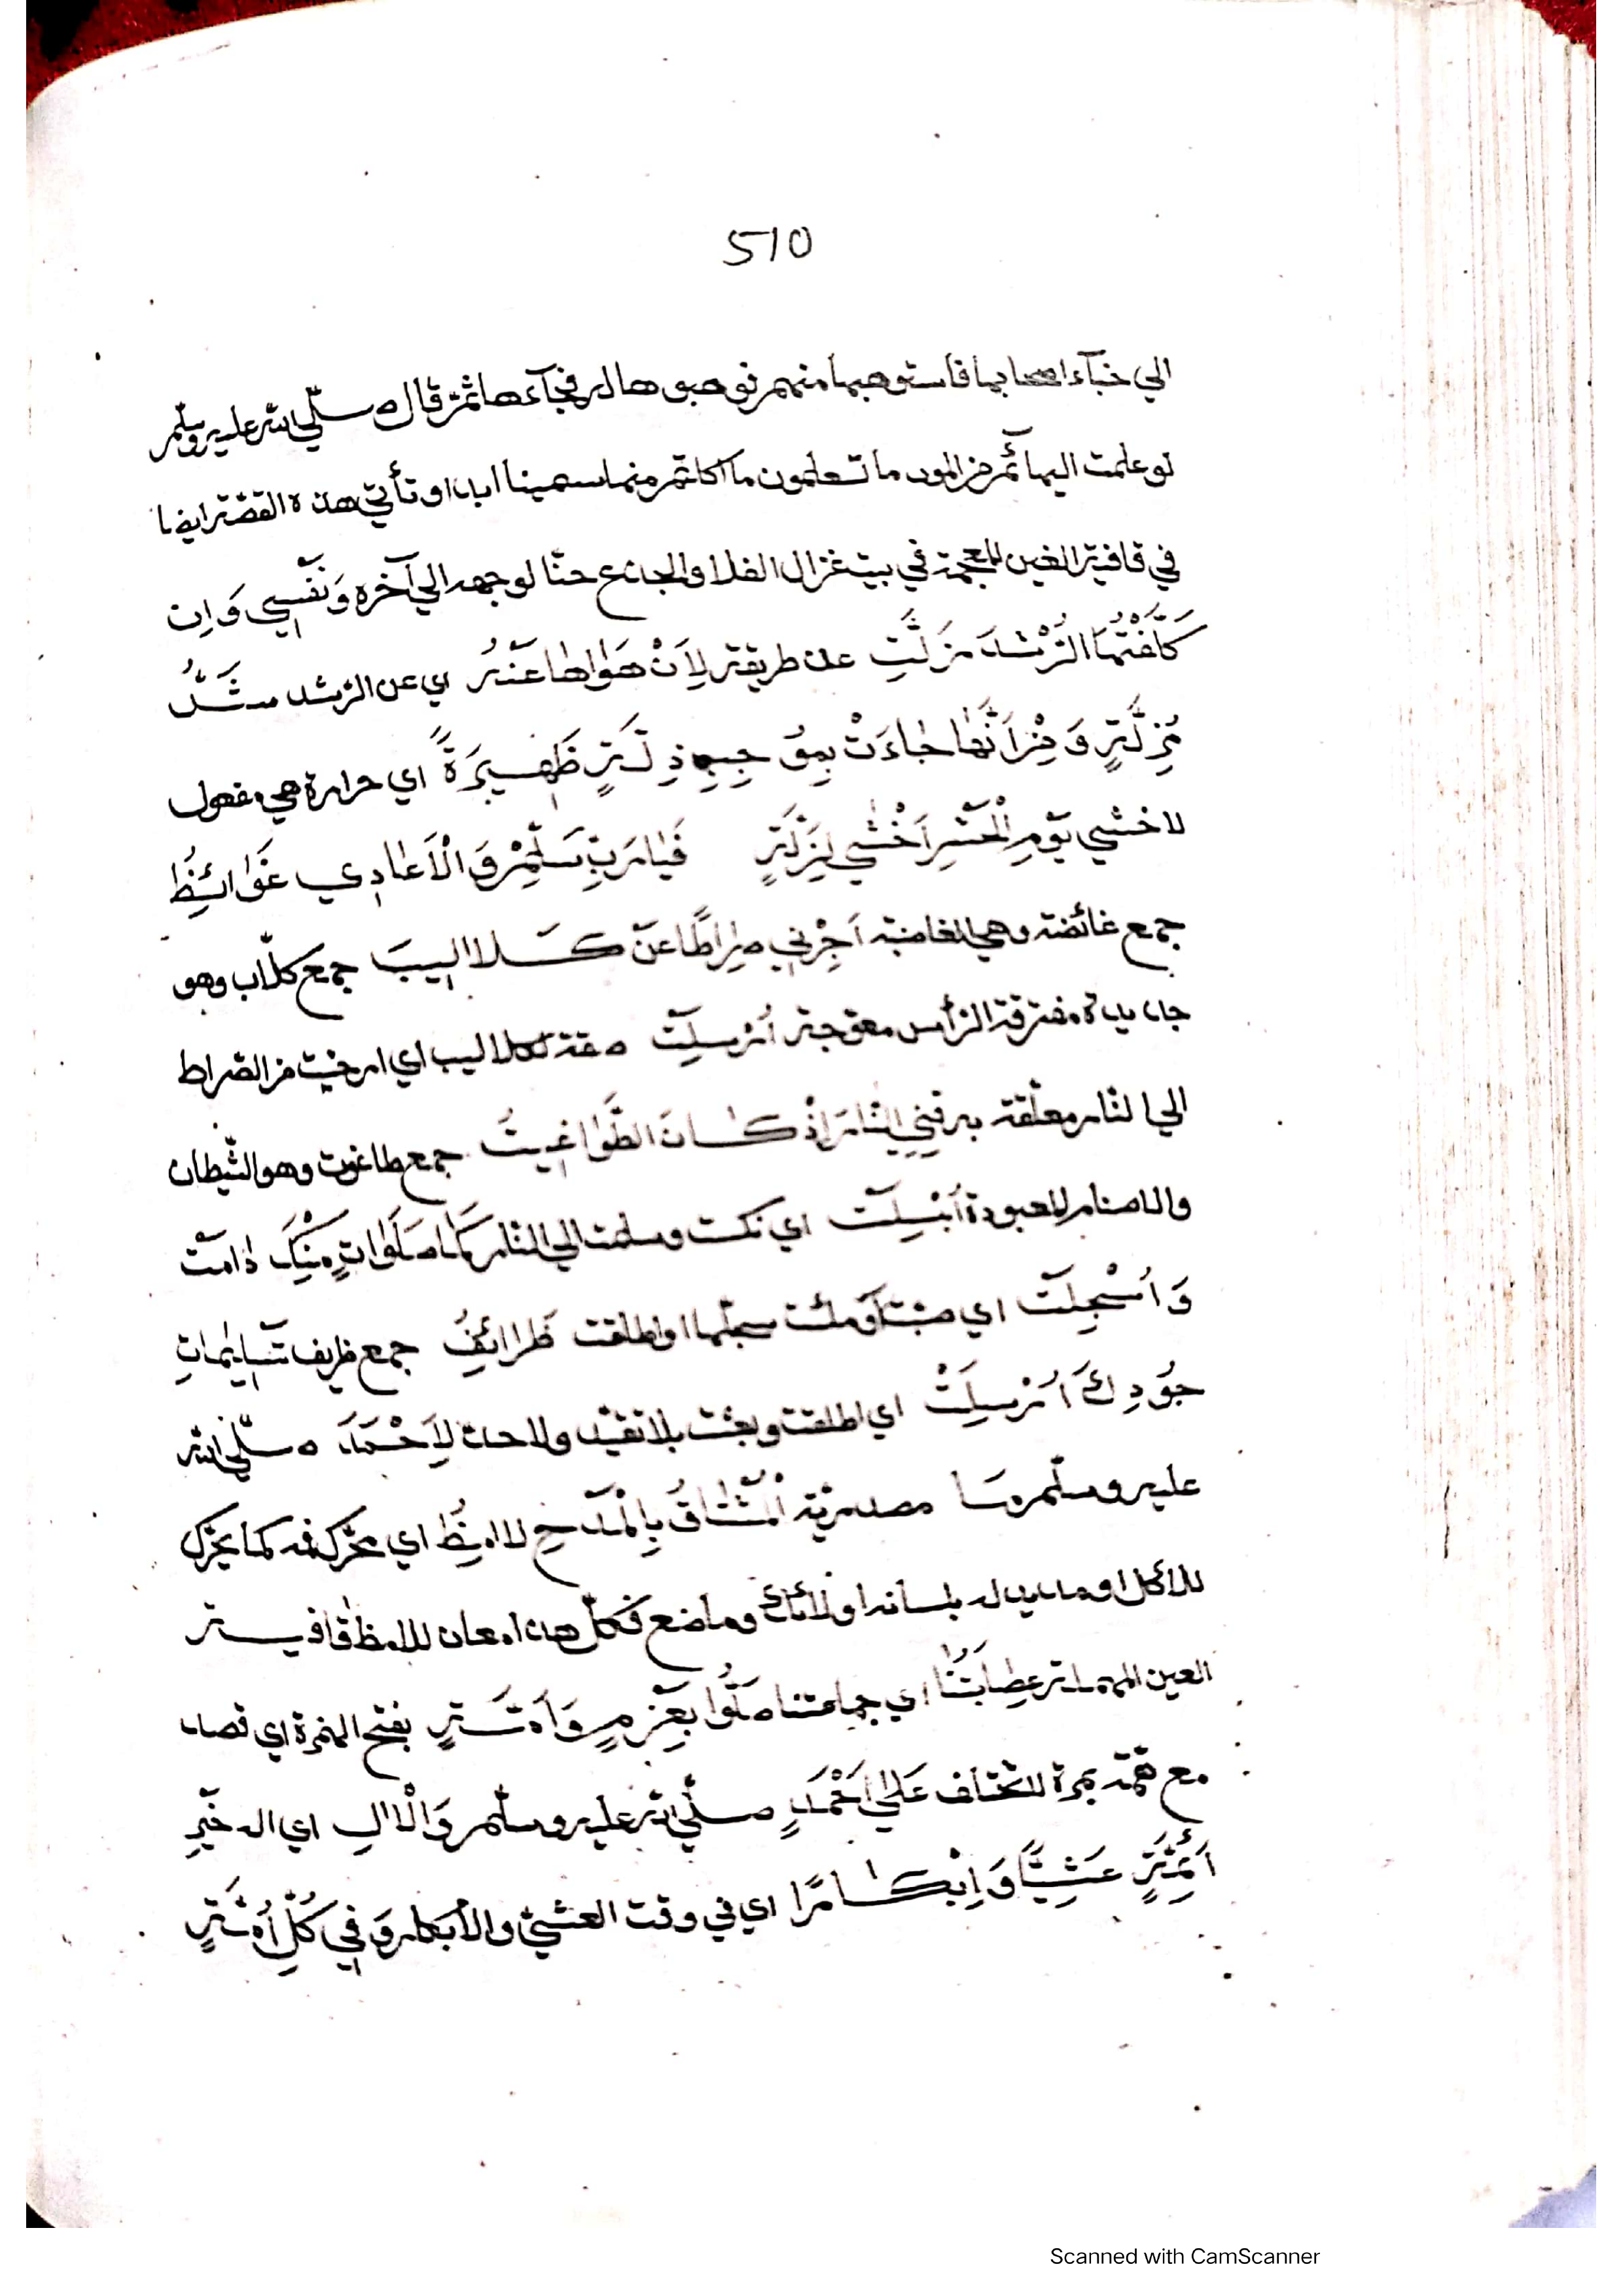 510
الي خبآء اصحابها فاستوهبها منهم فوهبوها له فجآءها ثم قال صلّي الله عليه وسلّم
لو علمت البهائم من الموت ما تعلمون ما اكلتم منها سمينا ابدا وتأتي هذه القصّة ايضا
في قافية الغين المعجمة في بيت غزال الفلا والجذع حنّا لوجهه الي آخره وَنَفْسِي وَاِن
كَلَّفْتُهَا الرُّشْدَ مَزَلَّتِ عن طريقة لِاَنْ هَوٰاهٰا عَنْهُ اي عن الرّشد شَدُّ
مُزِلَّةٍ وَمِنْ اَنَّهٰا جٰاءَتْ بِمُوجِبِ ذِلَّةٍ ظَهِيرَةً اي حرارة هي مفعول
لاخشي يَوْمِ الْحَشْرِ اَخْشٰي لِزَلَّةٍ فَيٰا رَبِّ سَلِّمْ وَالْاَعٰادِي غَوٰائِظُ
جمع غائضة وهي الغاضبة اَجِرْنِي صِرٰاطًا عَنْ كَلالِيبَ جمع كلّاب وهو
حديدة مفترقة الرّأس معوّجة اُرْسِلَتْ صفة لكلاليب اي ارخيت من الصّراط
الي النّار معلّقة به فِي النّٰارِ اِذْ كٰانَ الطَّوٰاغِيتُ جمع طاغوت وهو الشّيطان
والاصنام المعبودة اُبْسِلَتْ اي نكست وسلمت الي النّار كَمٰا صَلَوٰاتٍ مِنْكَ دٰامَتْ
وَاُسْجِلَتْ اي صبّت او ملئت سجلّها او اطلقت ظَرٰائِفُ جمع ظريف تَسْلِيمٰاتِ
جُودِكَ اُرْسِلَتْ اي اطلقت وبعثت بلا تقيّد ولا حدّ لِاَحْمَدَ صلّي الله
عليه وسلّم مٰا مصدريّة الْمُشْتٰاقُ بِالْمَدْحِ لامِظُ اي محرّك فمه كما يحرّك
للاكل او مدّ له بلسانه او لائك وماضغ فكلّ هذا معان للامظ قافيـة
العين المهملة عِصٰابَتُنٰا اي جماعتنا صَلُّوا بِعَزْمٍ وَاَمَّةٍ بفتح الهمزة اي قصد
مع همّة بمرة للتخلف عَلٰي اَحْمَدٍ صلّي الله عليه وسلّم وَالْاٰلِ اي اله خَيْرِ
اَئِمَّةٍ عَشِيًّا وَاِبْكٰارًا اي في وقت العشيّ والأبكار وَفِي كُلِّ اُمَّةٍ
Scanned with CamScanner